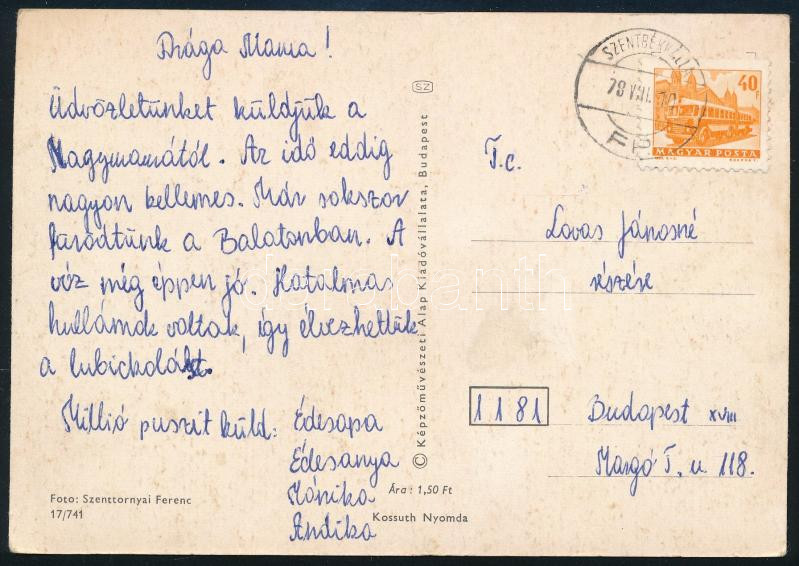 Drága Mama!
Üdvözletünket küldjük a
Nagymamától. Az idő eddig
nagyon kellemes. Már sokszor
fürödtünk a Balatonban. A
víz még éppen jó. Hatalmas
hullámok voltak, így élvezhettük
a lubickolást.
Millió puszit küld: Édesapa
Édesanya
Mónika
Andika
Foto: Szenttornyai Ferenc
17/741
Ára: 1,50 Ft
Kossuth Nyomda
SZ
© Képzőművészeti Alap Kiadóvállalata, Budapest
40 F
MAGYAR POSTA
T.c.
Lovas Jánosné
részére
1181 Budapest XVIII
Margó T. u 118.
darabanth